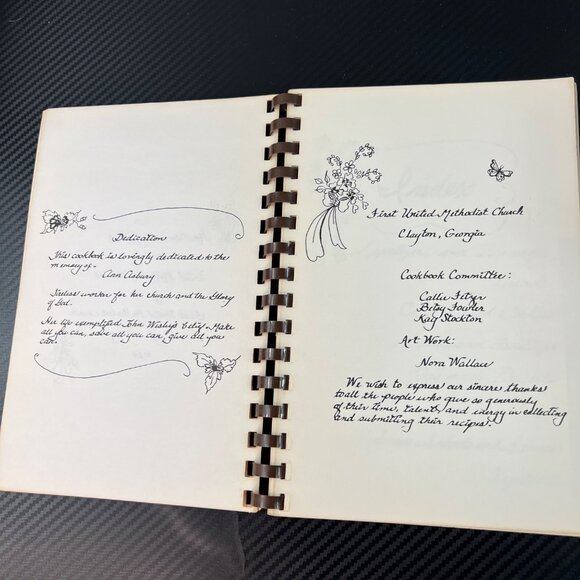 Dedication
This cookbook is lovingly dedicated to the
memory of-
Ann Asbury
Tireless worker for her church and the Glory
of God.
Her life exemplified John Wesley's belief - Make
all you can, save all you can, give all you
can!
First United Methodist Church
Clayton, Georgia
Cookbook Committee:
Callie Fetzer
Betsy Fowler
Kay Stockton
Art Work:
Nora Wallace
We wish to express our sincere thanks
to all the people who gave so generously
of their time, talent, and energy in collecting
and submitting their recipes.